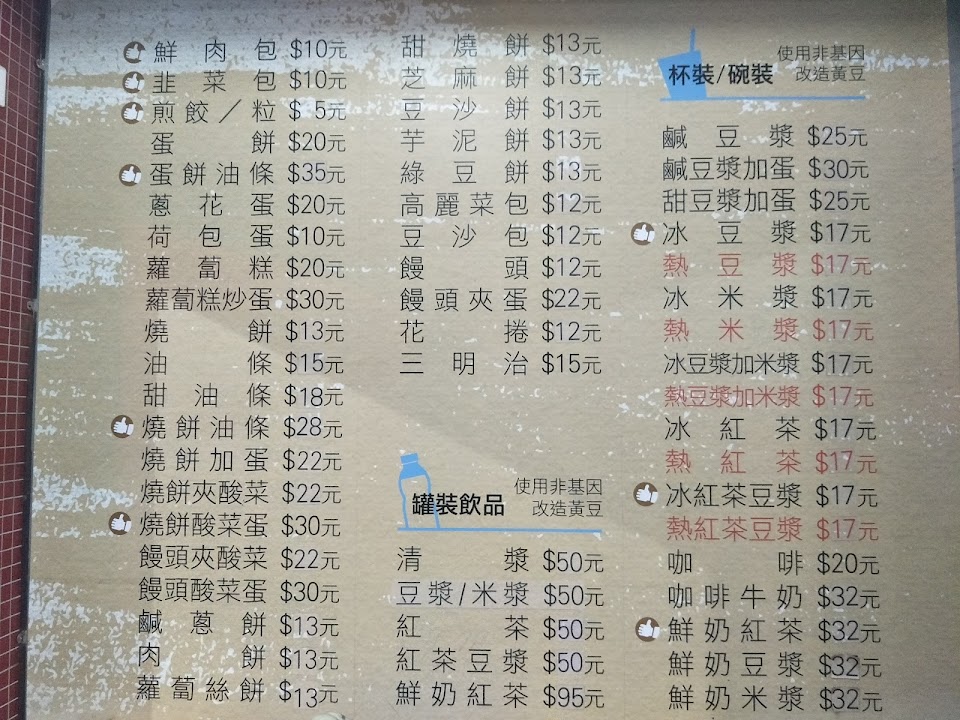 鮮肉包 $10元
韭菜包 $10元
煎餃/粒 $5元
蛋餅 $20元
蛋餅油條 $35元
蔥花蛋 $20元
荷包蛋 $10元
蘿蔔糕 $20元
蘿蔔糕炒蛋 $30元
燒餅 $13元
油條 $15元
甜油條 $18元
燒餅油條 $28元
燒餅加蛋 $22元
燒餅夾酸菜 $22元
燒餅酸菜蛋 $30元
饅頭夾酸菜 $22元
饅頭酸菜蛋 $30元
鹹蔥餅 $13元
肉餅 $13元
蘿蔔絲餅 $13元
甜燒餅 $13元
芝麻餅 $13元
豆沙餅 $13元
芋泥餅 $13元
綠豆餅 $13元
高麗菜包 $12元
豆沙包 $12元
饅頭 $12元
饅頭夾蛋 $22元
花捲 $12元
三明治 $15元
罐裝飲品
使用非基因
改造黃豆
清漿 $50元
豆漿/米漿 $50元
紅茶 $50元
紅茶豆漿 $50元
鮮奶紅茶 $95元
杯裝/碗裝
使用非基因
改造黃豆
鹹豆漿 $25元
鹹豆漿加蛋 $30元
甜豆漿加蛋 $25元
冰豆漿 $17元
熱豆漿 $17元
冰米漿 $17元
熱米漿 $17元
冰豆漿加米漿 $17元
熱豆漿加米漿 $17元
冰紅茶 $17元
熱紅茶 $17元
冰紅茶豆漿 $17元
熱紅茶豆漿 $17元
咖啡 $20元
咖啡牛奶 $32元
鮮奶紅茶 $32元
鮮奶豆漿 $32元
鮮奶米漿 $32元